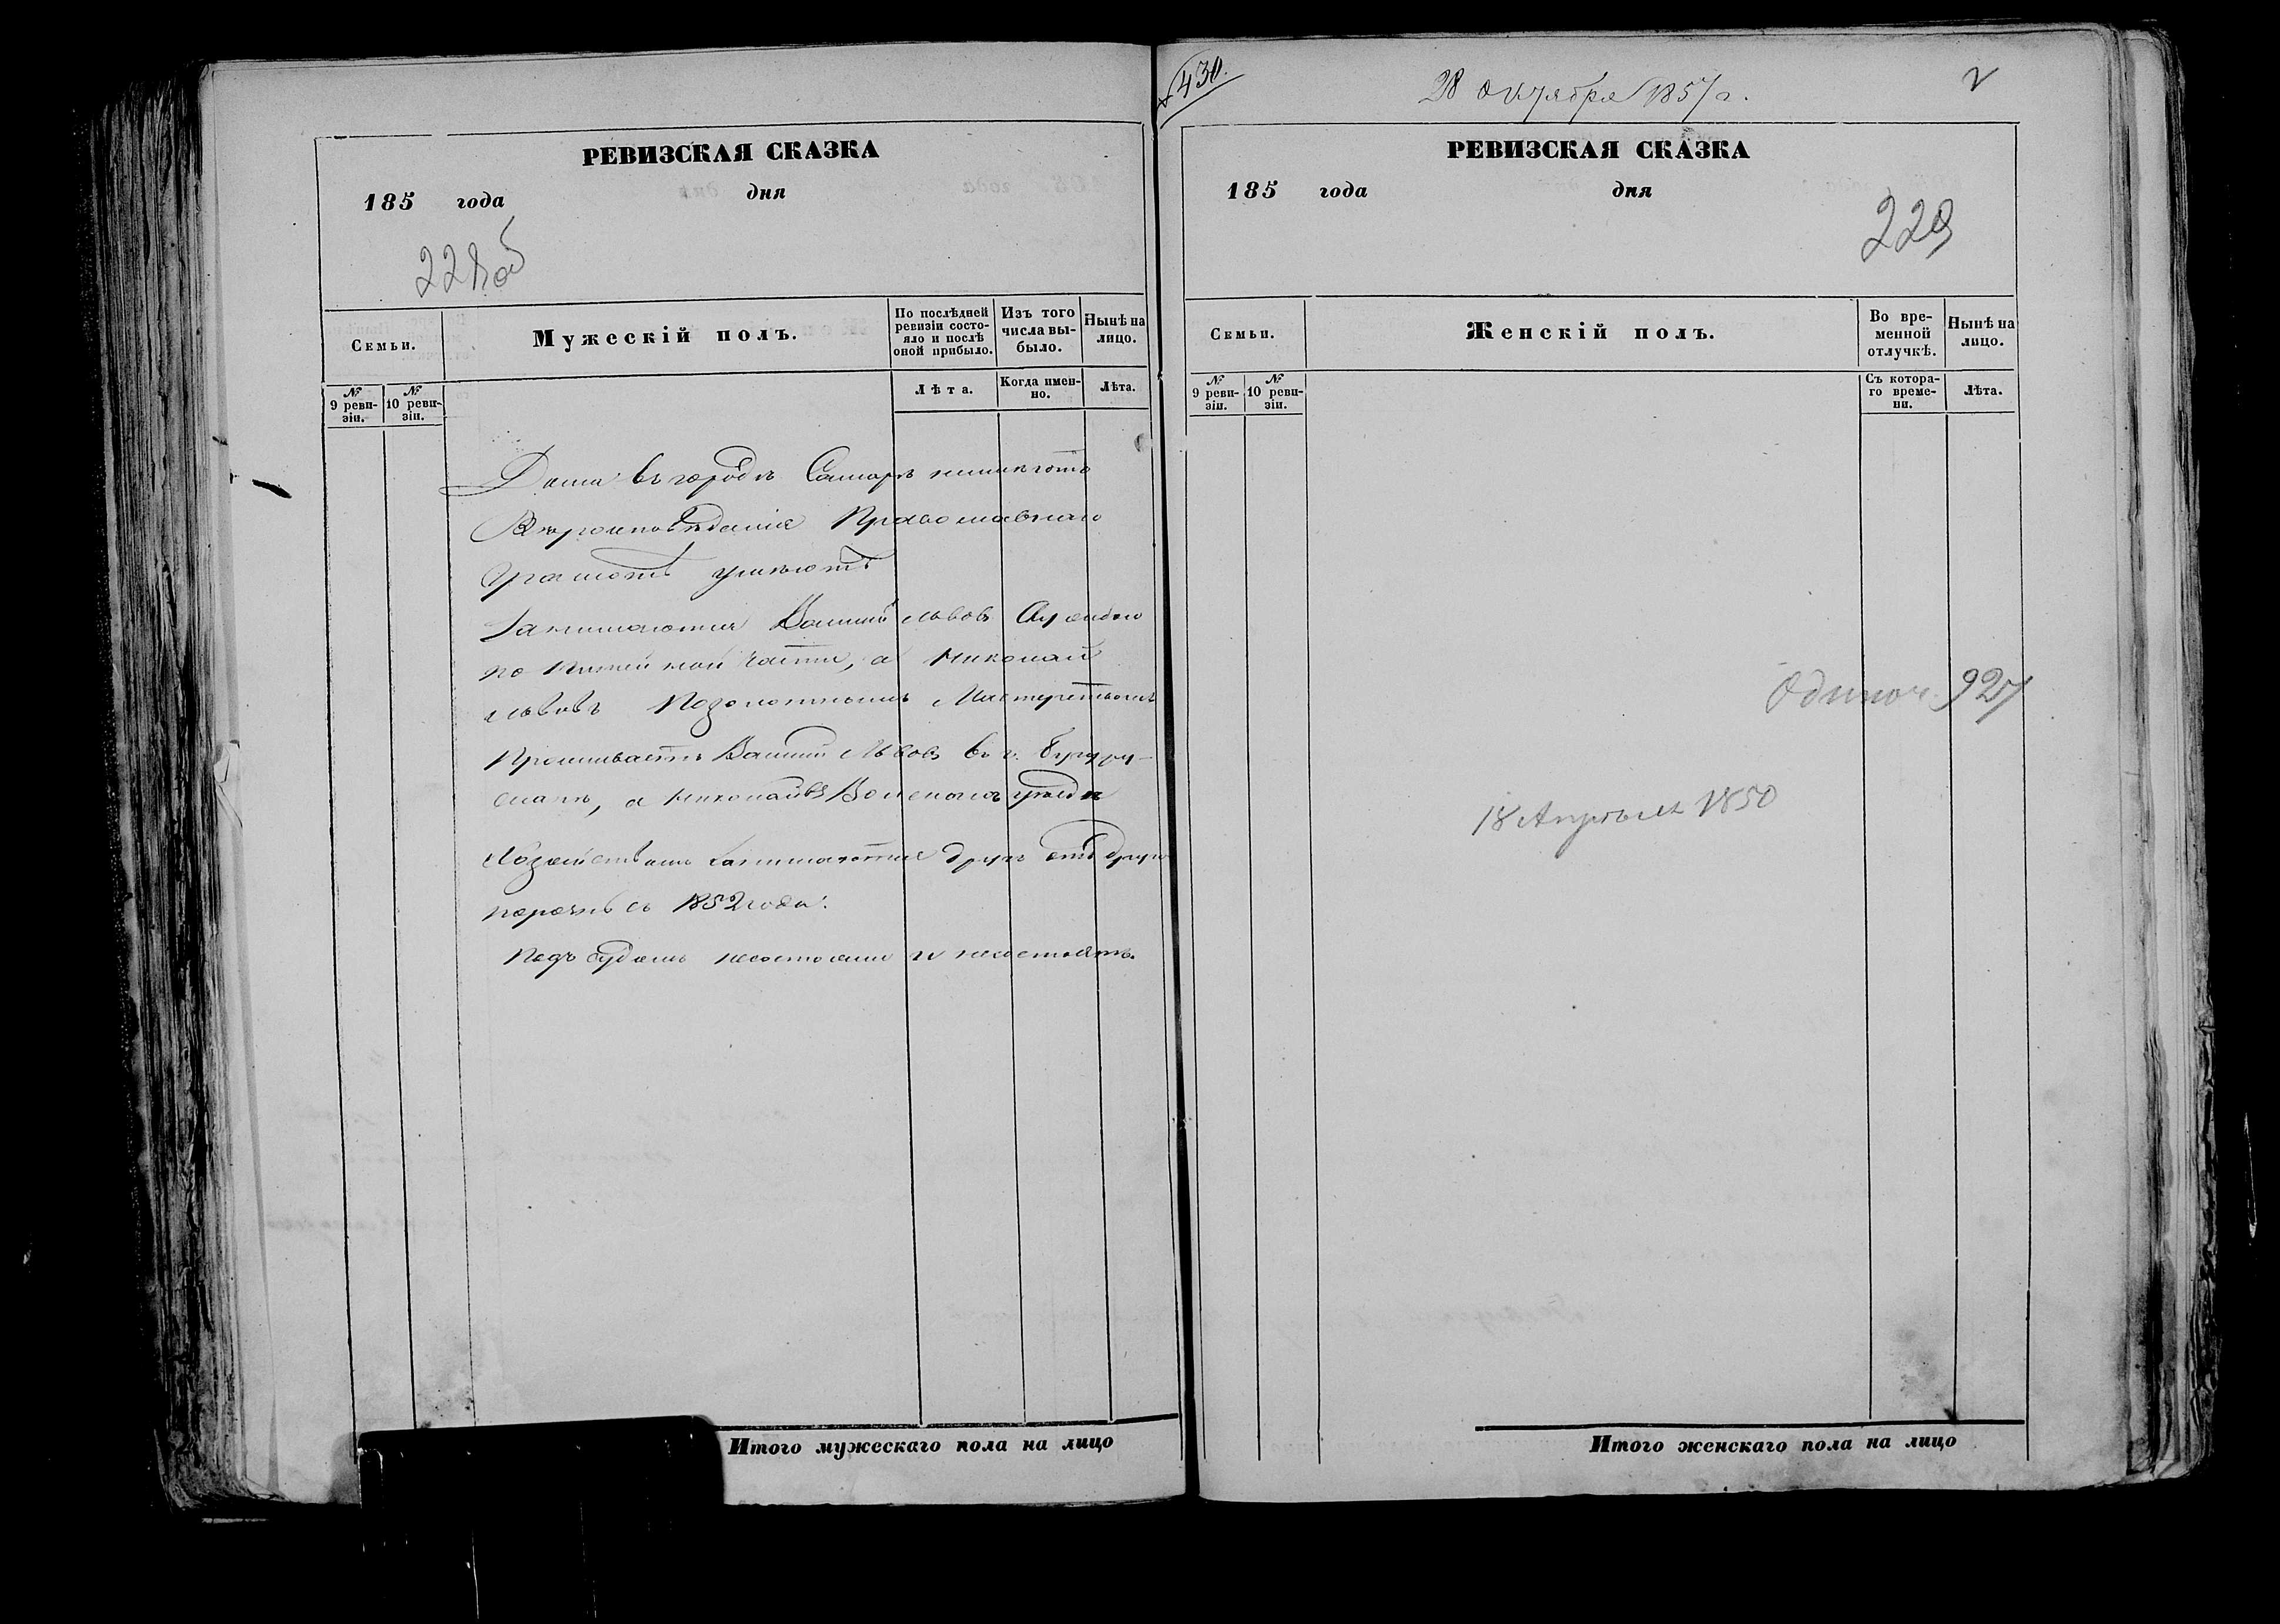 РЕВИЗСКАЯ СКАЗКА
185 года дня
228об
Семьи.
Мужескій полъ.
По послѣдней ревизіи состояло и послѣ оной прибыло.
Изъ того числа выбыло.
Нынѣ на лицо.
№ 9 ревизіи.
№ 10 ревизіи.
Лѣта.
Когда именно.
Лѣта.
Дома въ городѣ Самарѣ неимѣютъ
Вѣроисповѣданія Православнаго
Грамотѣ умѣютъ
Занимаются Василій Львовъ
по питейной части, а Николай
Львовъ Позолотнымъ Мастерствомъ
Проживаетъ Василій Львовъ въ г. Бугуру-
сланѣ, а Николай въ уѣздѣ
Хозяйствомъ занимаются другъ отъ друга
порознь съ 1852 года.
Подъ судомъ несостояли и несостоятъ.
Итого мужескаго пола на лицо
430.
28 Октября 1857 г.
2
РЕВИЗСКАЯ СКАЗКА
185 года дня
229
Семьи.
Женскій полъ.
Во временной отлучкѣ.
Нынѣ на лицо.
№ 9 ревизіи.
№ 10 ревизіи.
Съ котораго времени.
Лѣта.
Одиноч. 927
18 Апрѣля 1850
Итого женскаго пола на лицо